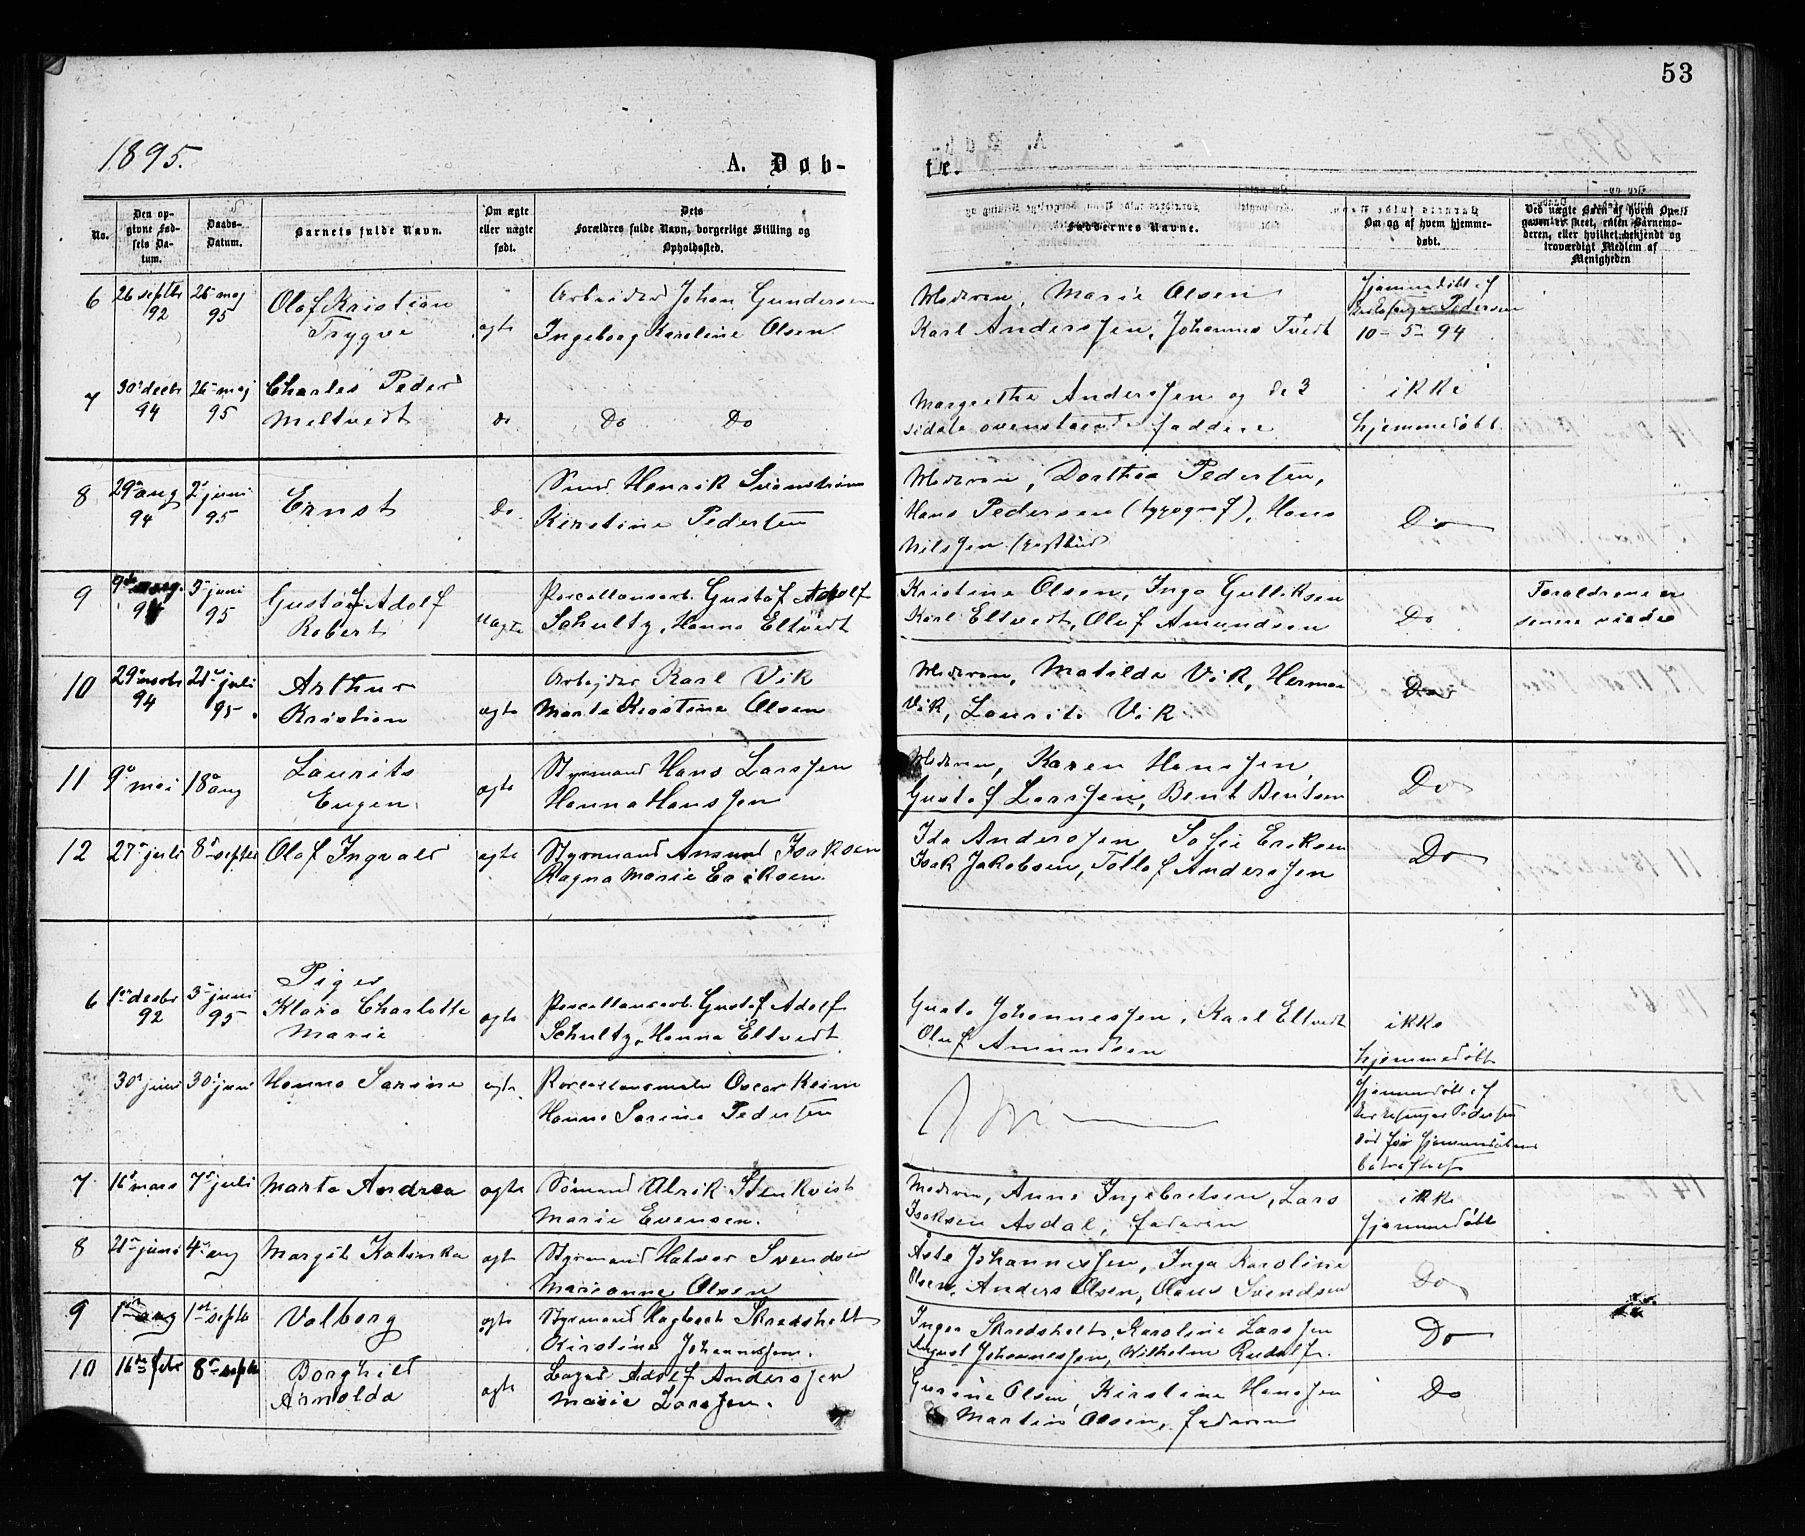 53
1895.
A. Døb-
te.
No.
Den op-
givne Fød-
sels Da-
tum.
Daabs-
Datum.
Barnets fulde Navn.
Om ægte
eller uægte
født.
Dets
Forældres fulde Navn, borgerlige Stilling og
Opholdssted.
Faddernes Navne.
Om og af hvem hjemme-
døbt.
Ved uægte Børn af hvem Op-
gaven er skeet, enten Barnemo-
deren, eller hvilket bekjendt og
troværdigt Medlem af
Menigheden
6 26 septbr 26 maj Olof Kristian Arbeider Johan Gundersen Moderen, Marie Olsen Hjemmedøbt af
92 95 Trygve ægte Ingeborg Karoline Olsen Karl Anderssen, Johannes Tvedt Kirkesanger Pedersen
10-5-94
7 30 decbr 26 maj Charles Peder Margrethe Anderssen og de 3 ikke
94 95 Meltvedt do Do Do sidste ovenstaaende faddere hjemmedøbt
8 29 aug 2 juni Ernst do Smed Henrik Svenstrøm Moderen, Dorthea Pedersen,
94 95 Kirstine Pedersen Hans Pedersen (typograf), Hans Do
Nilssen (postbud
9 3 juni Gustaf Adolf Porcellansarb. Gustaf Adolf Kristine Olsen, Inga Gulliksen Foraldrene er
95 Robert uægte Schultz, Hanna Eltvedt Karl Eltvedt, Olaf Amundsen Do senere viede
10 29 novbr 21 juli Arthur Arbejder Karl Vik Moderen, Matilda Vik, Herman Do
94 95. Kristian ægte Marte Kirstine Olsen Vik, Laurits Vik
11 9 mai 18 aug Laurits Styrmand Hans Larssen Moderen, Karen Hanssen Do
Eugen ægte Hanna Hanssen Gustaf Larssen, Bent Bentsen
12 27 juli 8 septbr Olaf Ingvald ægte Styrmand Amund Isaksen Ida Anderssen, Sofie Eriksen Do
Ragna Marie Eriksen Isak Jakobsen, Tollof Anderssen
Piger
6 1 decbr 3 juni Klara Charlotte Porcellansarb. Gustaf Adolf Gusta Johannessen, Karl Eltvedt ikke
92 95 Marie ægte Schultz, Hanna Eltvedt Oluf Amundsen hjemmedøbt
30 juni 30 juni Hanna Sarine ægte Porcellansmaler Oscar Reim Hjemmedøbt af
Hanna Sarine Pedersen Kirkesanger Pedersen
død før hjemmedaabens
bekræftelse
7 16 mars 7 juli Marta Andrea ægte Sømand Ulrik Stenkvist Moderen, Anne Ingebretsen, Lars ikke
Marie Evensen. Isaksen Asdal, faderen hjemmedøbt
8 21 juni 4 aug Margit Katinka ægte Styrmand Halvor Svendsen Aste Johannessen, Inga Karoline Do
Marianne Olsen Olsen, Anders Olsen, Olaus Svendsen
9 1 aug 1 septb Valborg ægte Styrmand Hagbart Skredshelt Inger Skredshelt, Karoline Larssen Do
Kirstine Johannessen. August Johannessen, Wilhelm Rudolf.
10 16 febr 8 septb Borghild Adolf Anderssen Gurine Olsen, Kirstine Hanssen Do
Arnolda ægte Marie Larssen. Martin Olsen, faderen